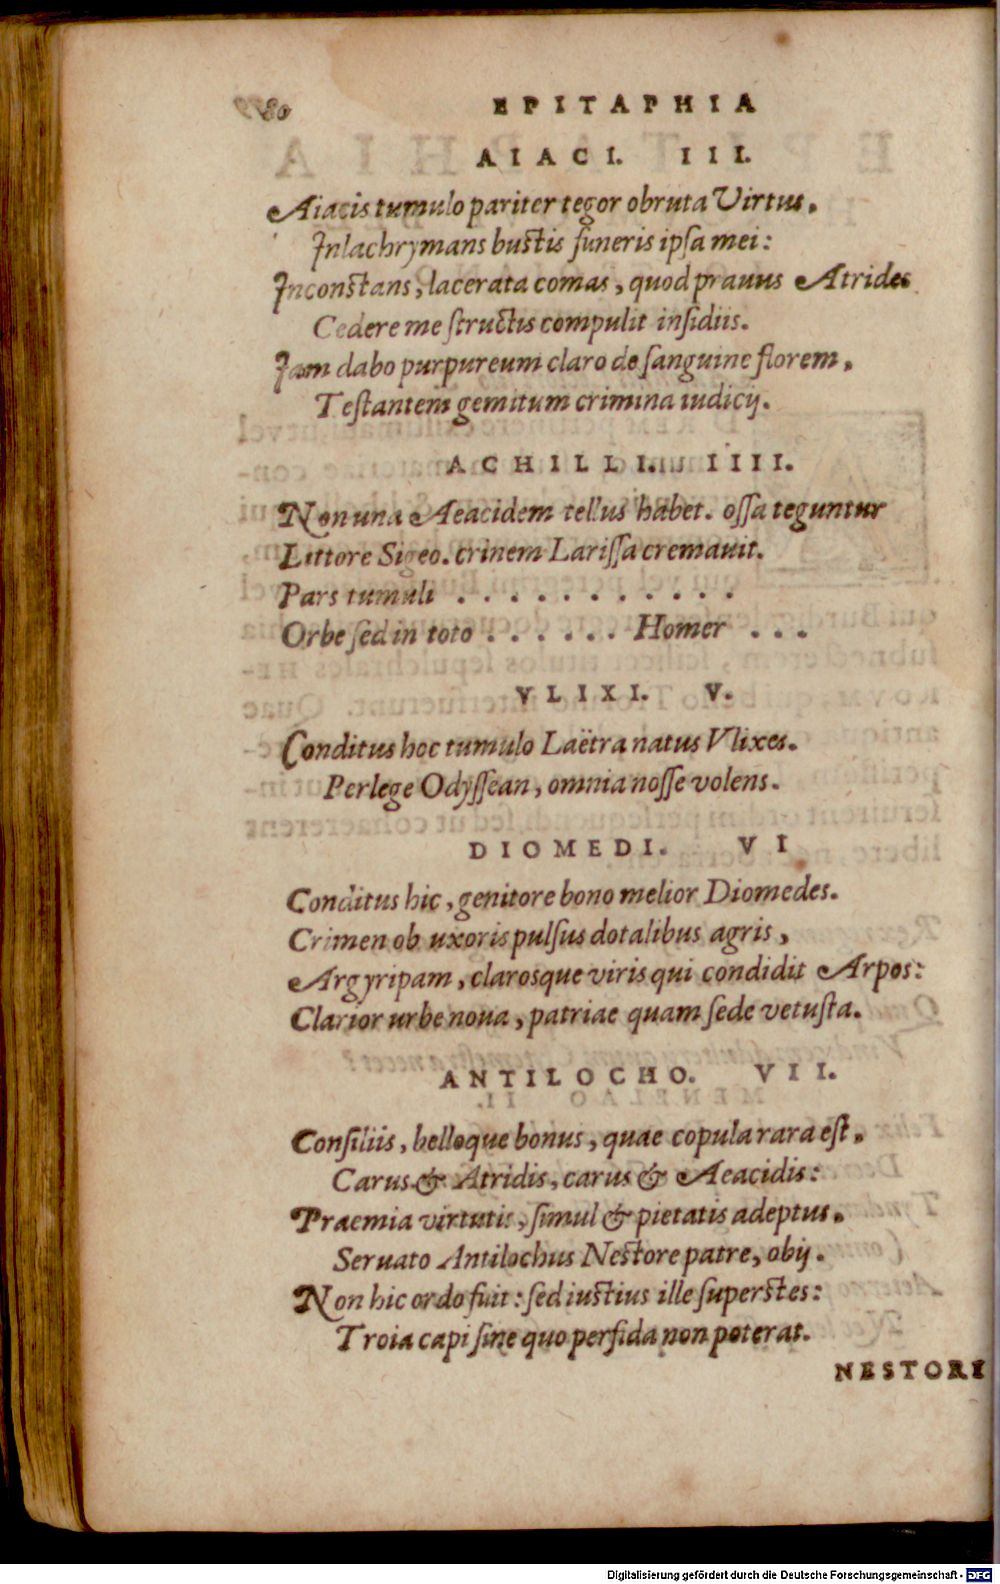 80
EPITAPHIA
AIACI. III.
Aiacis tumulo pariter tegor obruta Virtus,
Inlachrymans bustis funeris ipsa mei:
Inconstans, lacerata comas, quod prauus Atrides
Cedere me structis compulit insidiis.
Iam dabo purpureum claro de sanguine florem,
Testantem gemitum crimina iudicij.
ACHILLI. IIII.
Non una Aeacidem tellus habet. ossa teguntur
Littore Sigeo. crinem Larissa cremauit.
Pars tumuli . . . . . . . . . . .
Orbe sed in toto . . . . . . Homer . . .
VLIXI. V.
Conditus hoc tumulo Laërta natus Vlixes.
Perlege Odyssean, omnia nosse volens.
DIOMEDI. VI
Conditus hic, genitore bono melior Diomedes.
Crimen ob uxoris pulsus dotalibus agris,
Argyripam, clarosque viris qui condidit Arpos:
Clarior urbe noua, patriae quam sede vetusta.
ANTILOCHO. VII.
Consiliis, belloque bonus, quae copula rara est,
Carus & Atridis, carus & Aeacidis:
Praemia virtutis, simul & pietatis adeptus,
Seruato Antilochus Nestore patre, obij.
Non hic ordo fuit: sed iustius ille superstes:
Troia capi sine quo perfida non poterat.
NESTORI
Digitalisierung gefördert durch die Deutsche Forschungsgemeinschaft - DFG